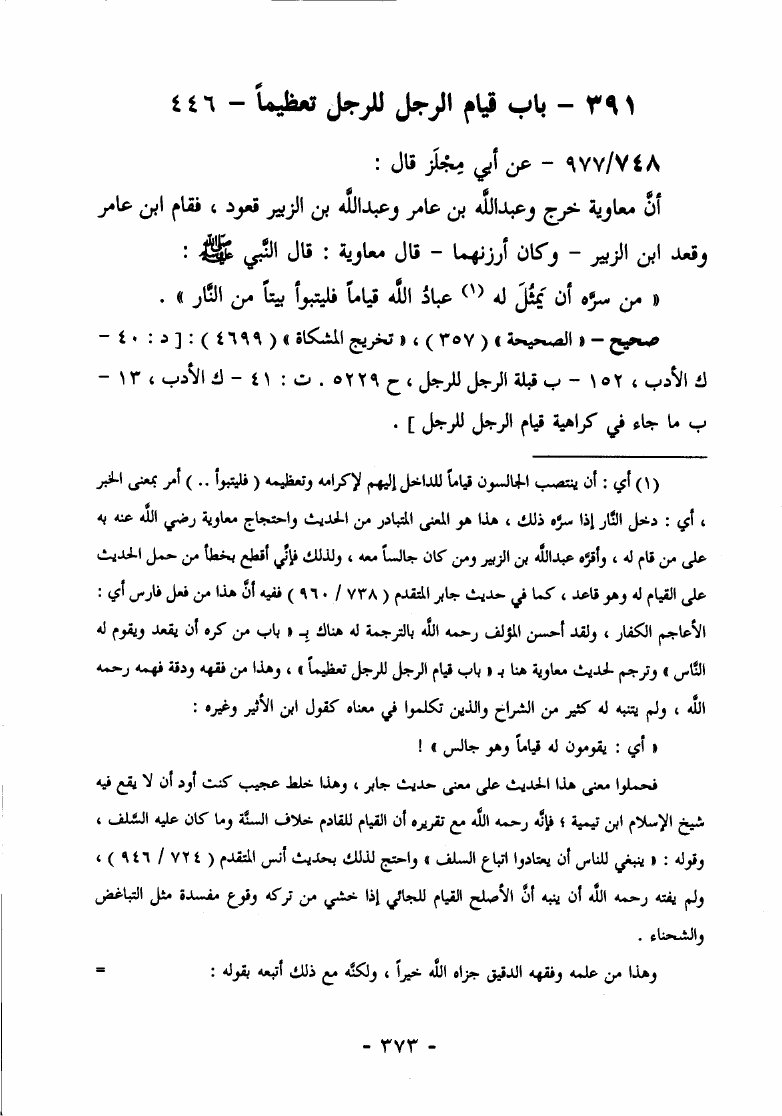 ٣٩١ – باب قيام الرجل للرجل تعظيماً – ٤٤٦
٩٧٧/٧٤٨ – عن أبي مِجْلَزٍ قال :
أنَّ معاوية خرج وعبداللَّه بن عامر وعبداللَّه بن الزبير قعود ، فقام ابن عامر
وقعد ابن الزبير – وكان أرزنهما – قال معاوية : قال النَّبي ﷺ :
« من سرَّه أن يَمْثُلَ له (١) عبادُ اللَّه قياماً فليتبوأ بيتاً من النَّار » .
صحيح – « الصحيحة » ( ٣٥٧ ) ، « تخريج المشكاة » ( ٤٦٩٩ ) : [ د : ٤٠ –
ك الأدب ، ١٥٢ – ب قبلة الرجل للرجل ، ح ٥٢٢٩ . ت : ٤١ – ك الأدب ، ١٣ –
ب ما جاء في كراهية قيام الرجل للرجل ] .
(١) أي : أن ينتصب الجالسون قياماً للداخل إليهم لإكرامه وتعظيمه ( فليتبوأ .. ) أمر بمعنى الخبر
، أي : دخل النَّار إذا سرَّه ذلك ، هذا هو المعنى المتبادر من الحديث واحتجاج معاوية رضي اللَّه عنه به
على من قام له ، وأقرَّه عبداللَّه بن الزبير ومن كان جالساً معه ، ولذلك فإنِّي أقطع بخطأ من حمل الحديث
على القيام له وهو قاعد ، كما في حديث جابر المتقدم ( ٧٣٨ / ٩٦٠ ) ففيه أنَّ هذا من فعل فارس أي :
الأعاجم الكفار ، ولقد أحسن المؤلف رحمه اللَّه بالترجمة له هناك بـ « باب من كره أن يقعد ويقوم له
النَّاس » وترجم لحديث معاوية هنا بـ « باب قيام الرجل للرجل تعظيماً » ، وهذا من فقهه ودقة فهمه رحمه
اللَّه ، ولم يتنبه له كثير من الشراح والذين تكلموا في معناه كقول ابن الأثير وغيره :
« أي : يقومون له قياماً وهو جالس » !
فحملوا معنى هذا الحديث على معنى حديث جابر ، وهذا خلط عجيب كنت أود أن لا يقع فيه
شيخ الإسلام ابن تيمية ؛ فإنَّه رحمه اللَّه مع تقريره أن القيام للقادم خلاف السنَّة وما كان عليه السَّلف ،
وقوله : « ينبغي للناس أن يعتادوا اتباع السلف » واحتج لذلك بحديث أنس المتقدم ( ٧٢٤ / ٩٤٦ ) ،
ولم يفته رحمه اللَّه أن ينبه أنَّ الأصلح القيام للجائي إذا خشي من تركه وقوع مفسدة مثل التباغض
والشحناء .
وهذا من علمه وفقهه الدقيق جزاه اللَّه خيراً ، ولكنَّه مع ذلك أتبعه بقوله : =
- ٣٧٣ -